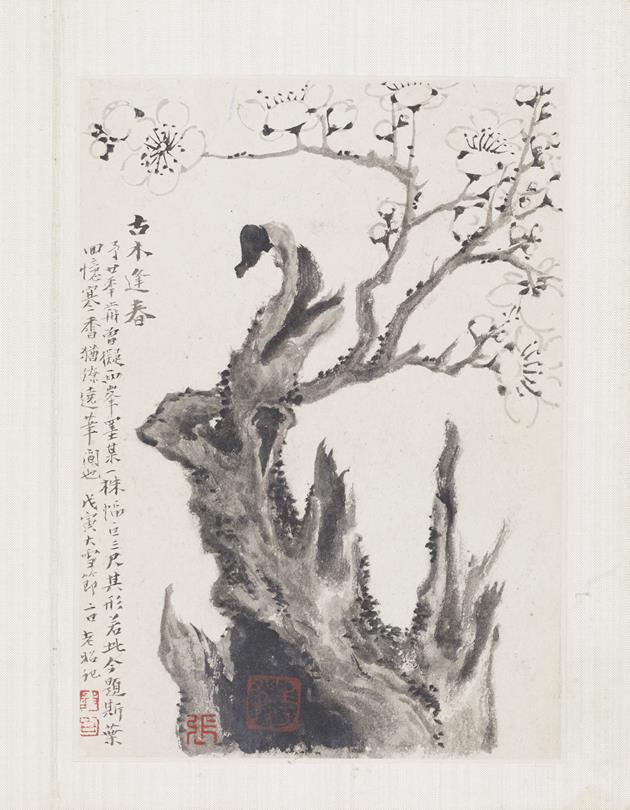 古木逢春
予廿年前曾擬西峯墨某一株幅巨三尺其形若此今題斯葉
回憶寒香猶繚遶筆間也 戊寅大雪節二日 老昭記
張